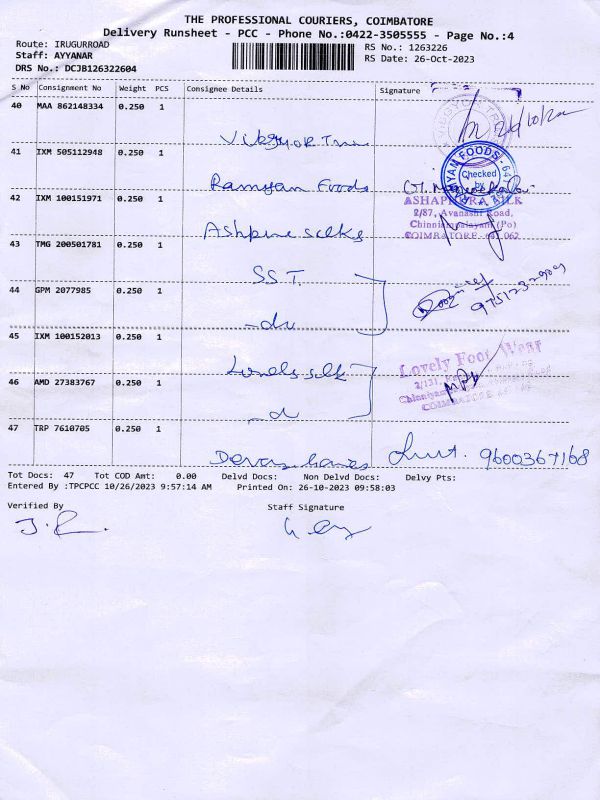 THE PROFESSIONAL COURIERS, COIMBATORE
Delivery Runsheet - PCC - Phone No.:0422-3505555 - Page No.:4
Route: IRUGURROAD
Staff: AYYANAR
DRS No.: DCJB126322604
RS No.: 1263226
RS Date: 26-Oct-2023
S No Consignment No Weight PCS Consignee Details Signature
40 MAA 862148334 0.250 1
41 IXM 505112948 0.250 1 Ramyam Foods
RAMYAM FOODS
Checked by
42 IXM 100151971 0.250 1 silks
2/87, Avanashi Road,
Chinniampalayam (Po)
COIMBATORE - 641 062
43 TMG 200501781 0.250 1 SST.
44 GPM 2077985 0.250 1 -do
45 IXM 100152013 0.250 1
Lovely Foot Wear
COIMBATORE
46 AMD 27383767 0.250 1
47 TRP 7610705 0.250 1 9600367168
Tot Docs: 47 Tot COD Amt: 0.00 Delvd Docs: Non Delvd Docs: Delvy Pts:
Entered By :TPCPCC 10/26/2023 9:57:14 AM Printed On: 26-10-2023 09:58:03
Verified By Staff Signature